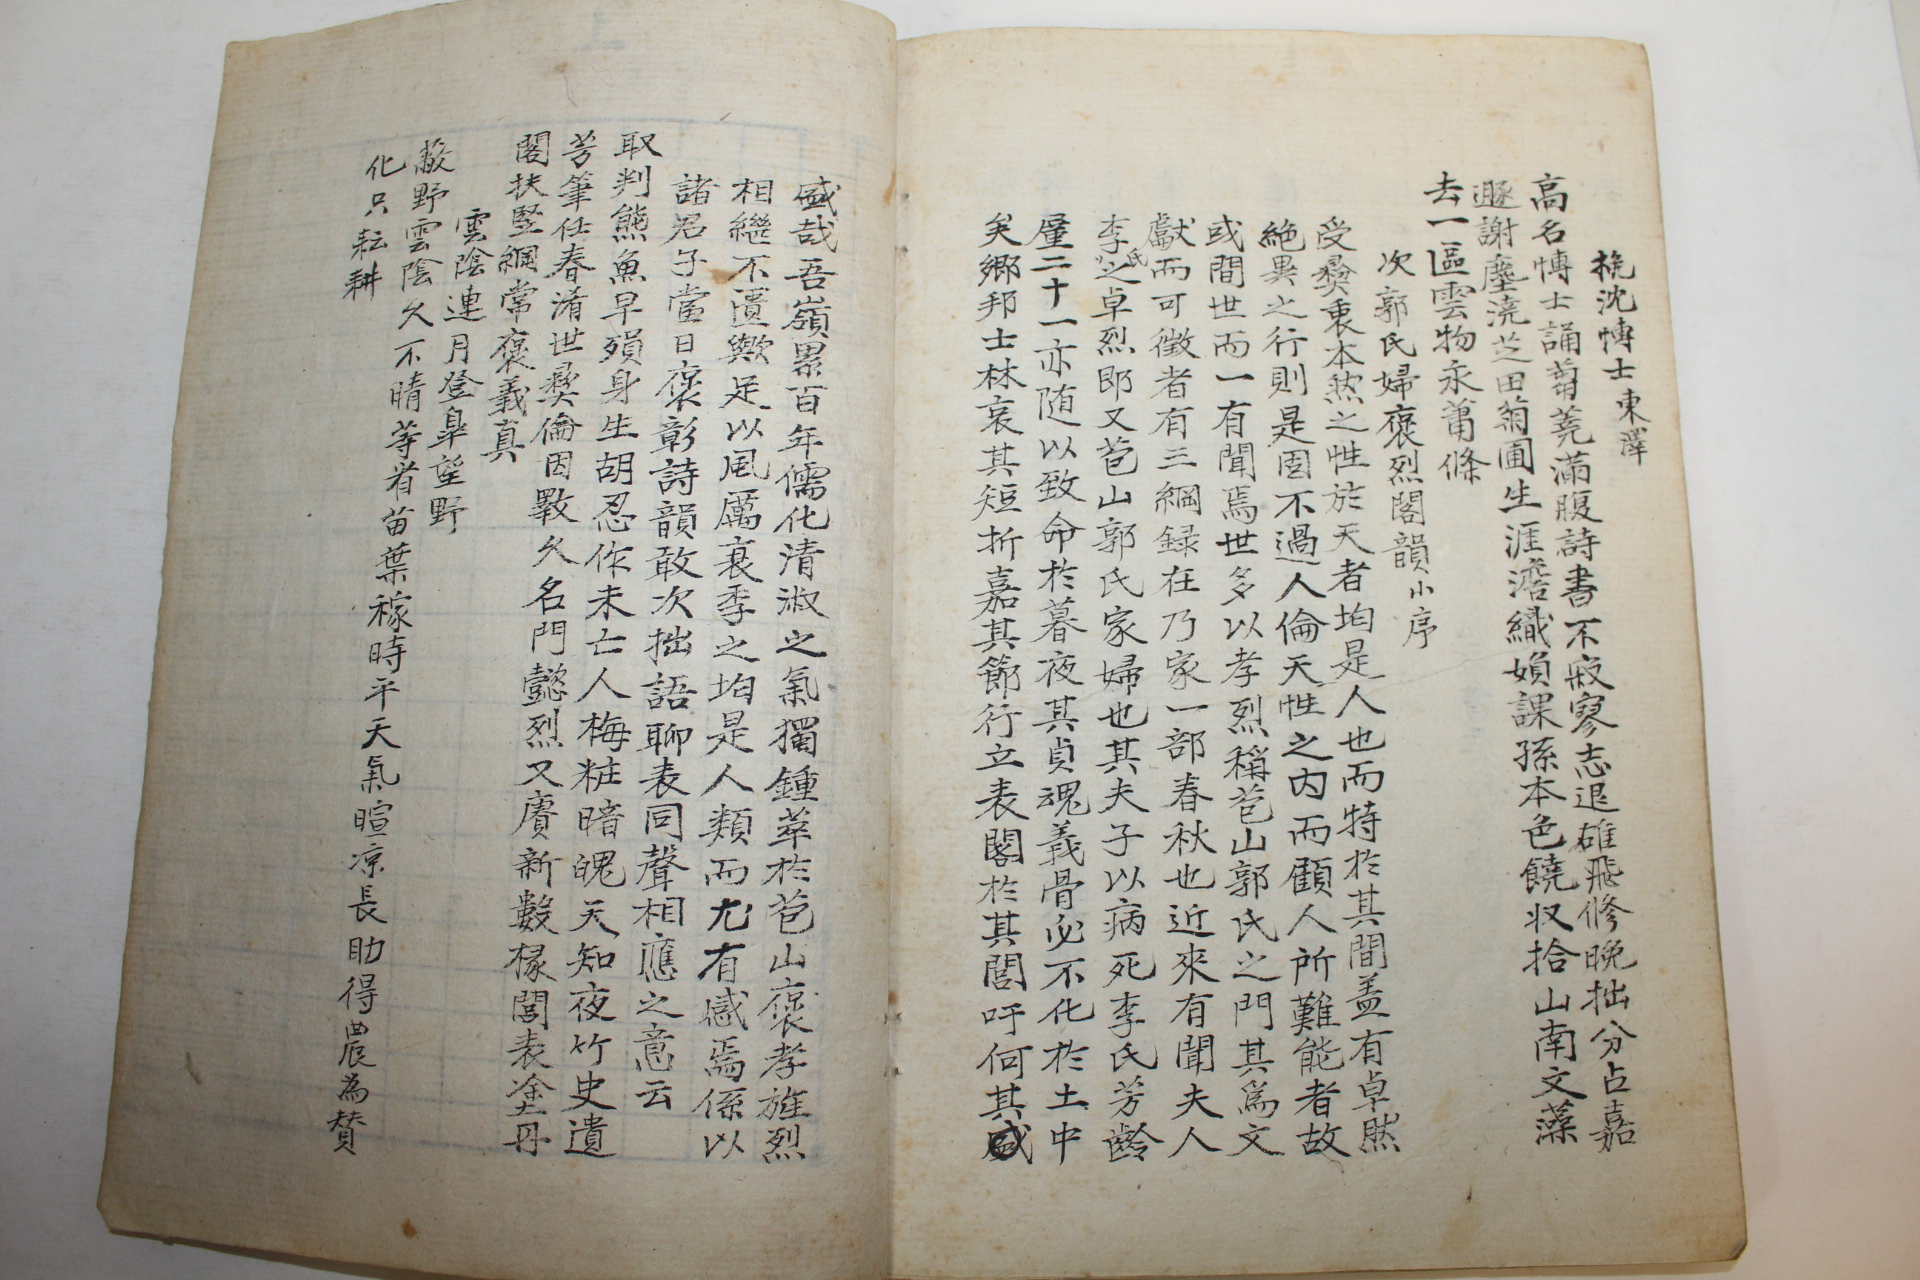 挽沈博士東澤
高名博士誦蒭蕘滿腹詩書不寂寥志退碓飛修晩拙分占嘉
遯謝塵澆芝田菊圃生涯澹織娟課孫本色饒収拾山南文藻
去一區雲物永蕭條
次郭氏婦褒烈閣韻小序
受彛衷本然之性於天者均是人也而特於其間盖有卓然
絶異之行則是固不過人倫天性之内而顧人所難能者故
或間世而一有聞焉世多以孝烈稱苞山郭氏之門其爲文
獻而可徴者有三綱録在乃家一部春秋也近來有聞夫人
李氏之卓烈郎又苞山郭氏家婦也其夫子以病死李氏芳齡
廑二十一亦随以致命於暮夜其貞魂義骨必不化於土中
矣鄉邦士林哀其短折嘉其節行立表閣於其閭吁何其盛
盛哉吾嶺累百年儒化清淑之氣獨鍾萃於苞山褒孝旌烈
相繼不匱歟足以風厲衰季之均是人類而尤有感焉係以
諸君子當日褒彰詩韻敢次拙語聊表同聲相應之意云
取判熊魚早殞身生胡忍作未亡人梅粧暗魄天知夜竹史遺
芳筆任春淆世彛倫因斁久名門懿烈又賡新數椽閭表塗丹
閣扶竪綱常褒義真
雲陰連月登皐望野
蔽野雲陰久不晴等省苗葉稼時平天氣暄凉長助得農為賛
化只耘耕